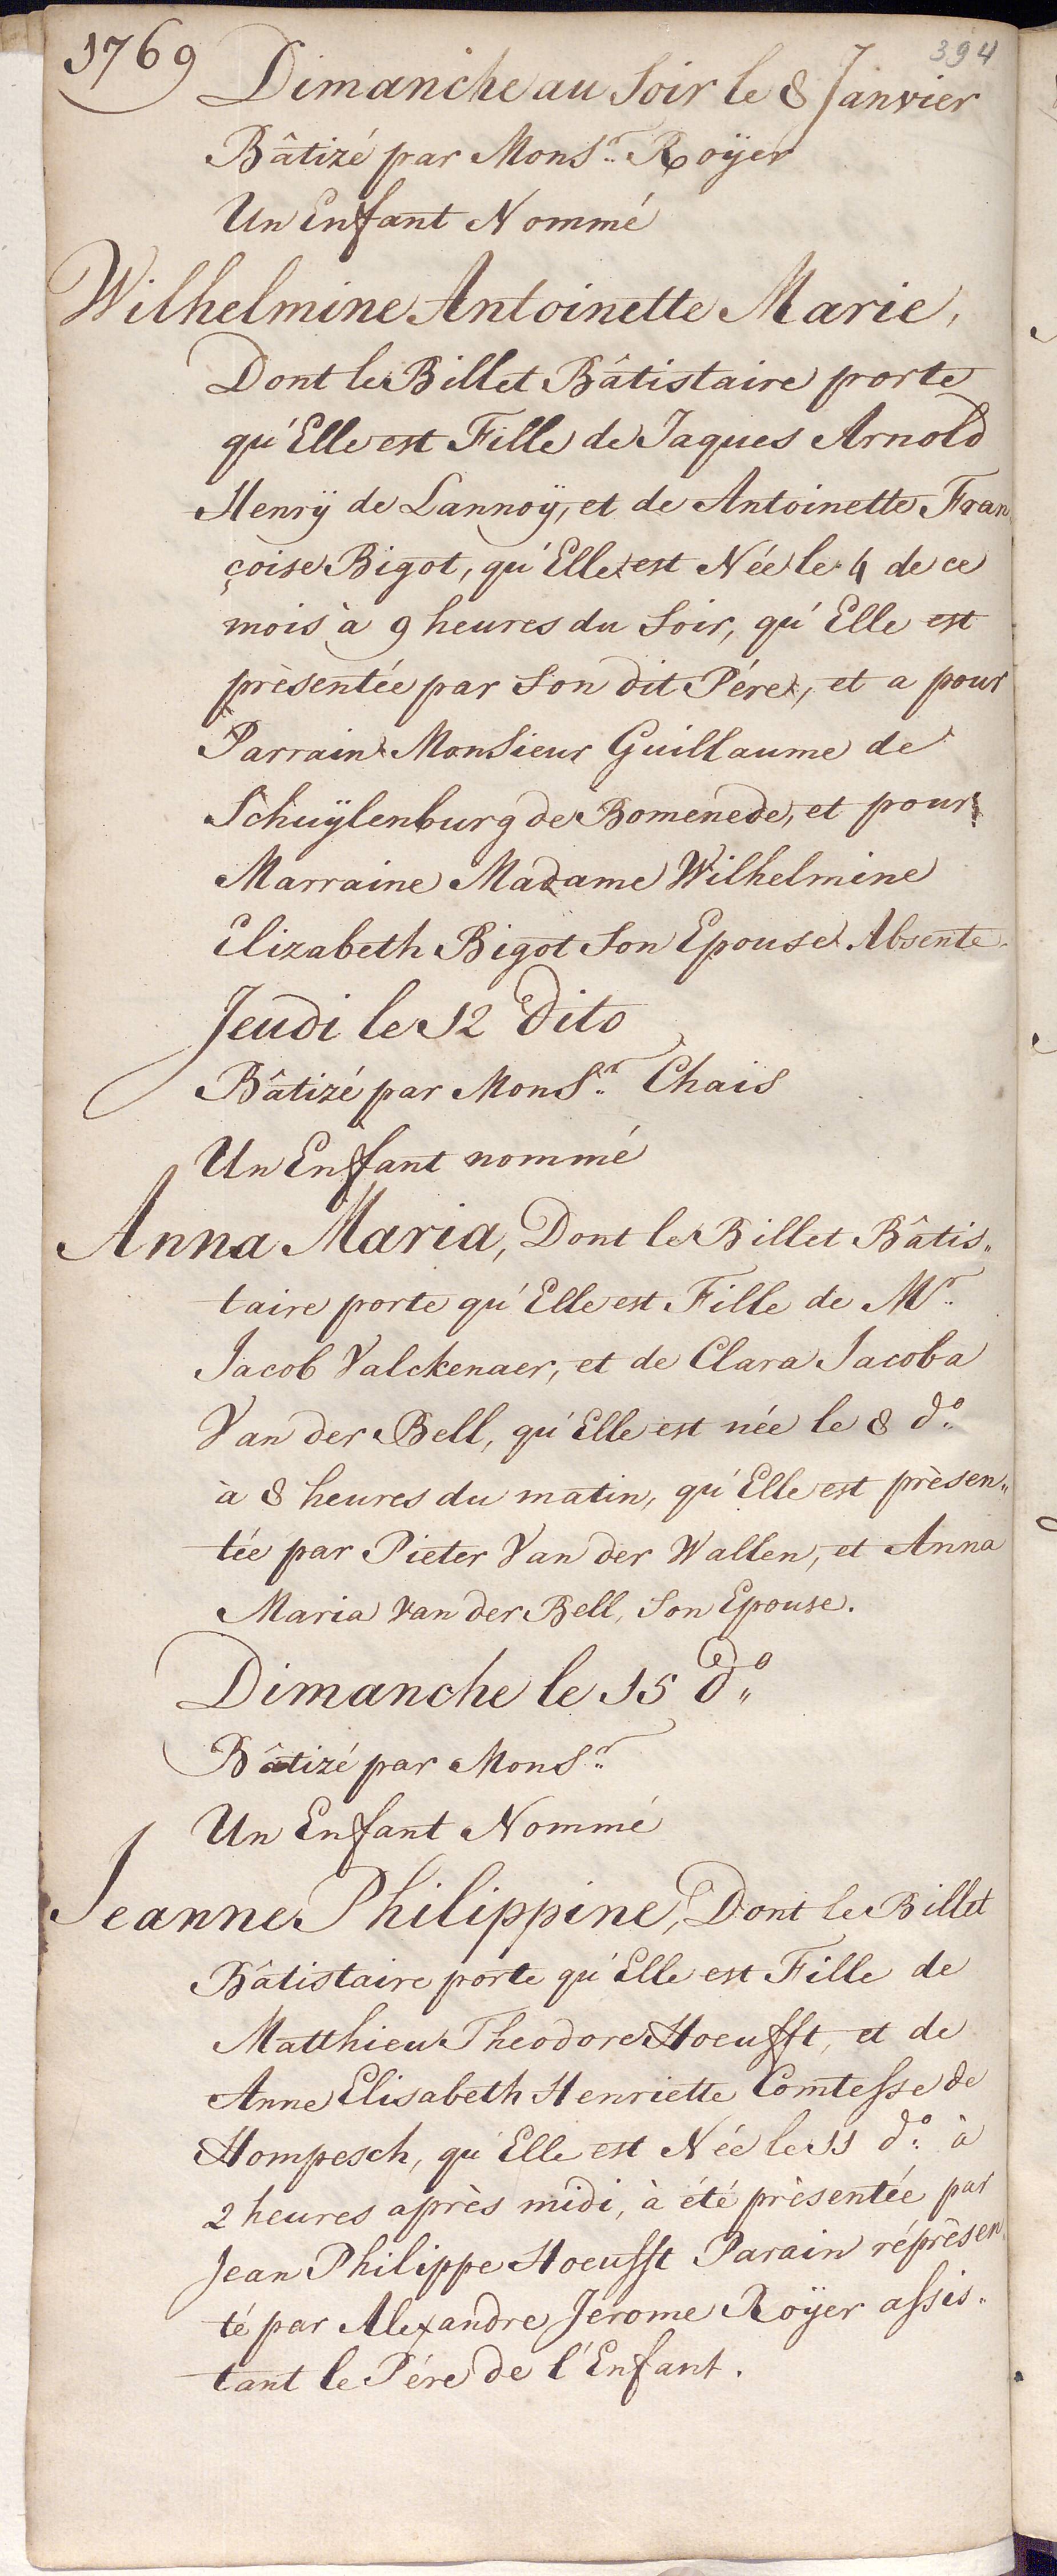 1769
394
Dimanche au Soir le 8 Janvier
Bâtizé par Mons.r Roÿer
Un Enfant Nommé
Wilhelmine Antoinette Marie,
Dont le Billet Bâtistaire porte
qu'Elle est Fille de Jaques Arnold
Henrÿ de Lannoÿ, et de Antoinette Fran
çoise Bigot, qu'Elle est Née le 4 de ce
mois à 9 heures du Soir, qu'Elle est
prèsentée par Son dit Pére, et a pour
Parrain Monsieur Guillaume de
Schuÿlenburg de Bomenede, et pour
Marraine Madame Wilhelmine
Elizabeth Bigot Son Epouse Absente.
Jeudi le 12 Dito
Bâtizé par MonS.r Chais
Un Enfant nommé
Anna Maria, Dont le Billet Bâtis„
taire porte qu'Elle est Fille de M.r
Jacob Valckenaer, et de Clara Jacoba
Van der Bell, qu'Elle est née le 8 d.o
à 8 heures du matin, qu'Elle est prèsen„
tée par Pieter Van der Wallen, et Anna
Maria van der Bell, Son Epouse.
Dimanche le 15 d.o
Bâtizé par MonS.r
Un Enfant Nommé
Jeanne Philippine, Dont le Billet
Bâtistaire porte qu'Elle est Fille de
Matthieu Theodore Hoeufft, et de
Anne Elisabeth Henriette Comtesse de
Hompesch, qu'Elle est Née le 11 d.o à
2 heures après midi, à été prèsentée par
Jean Philippe Hoeufft Parain réprèsen
té par Alexandre Jerome Roÿer assis„
tant le Pére de l'Enfant.